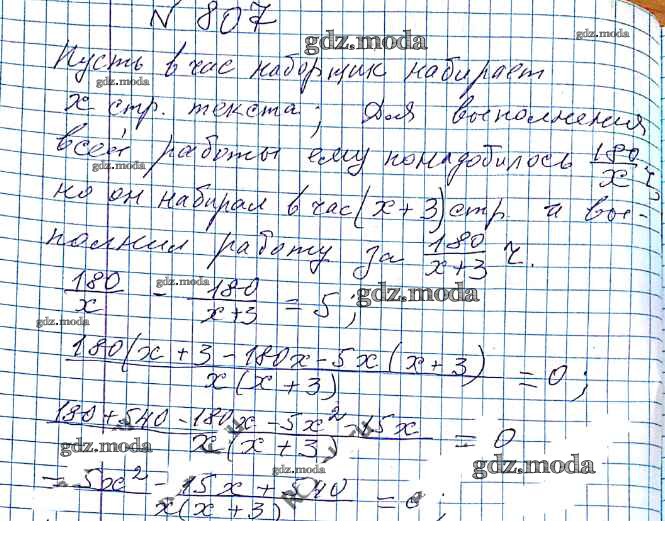 № 807
gdz.moda
Пусть в час наборщик набирает
gdz.moda
x стр. текста; Для выполнения
всей работы ему понадобилось 180/x ч,
gdz.moda
но он набирал в час (x+3) стр. и вы-
полнил работу за 180/(x+3) ч.
180/x - 180/(x+3) = 5;
gdz.moda
gdz.moda
180(x+3-180x-5x(x+3) / x(x+3) = 0;
180+540-180x-5x²-15x / x(x+3) = 0
gdz.moda
gdz.moda
gdz.moda
= 5x² - 15x + 540 / x(x+3) = 0;